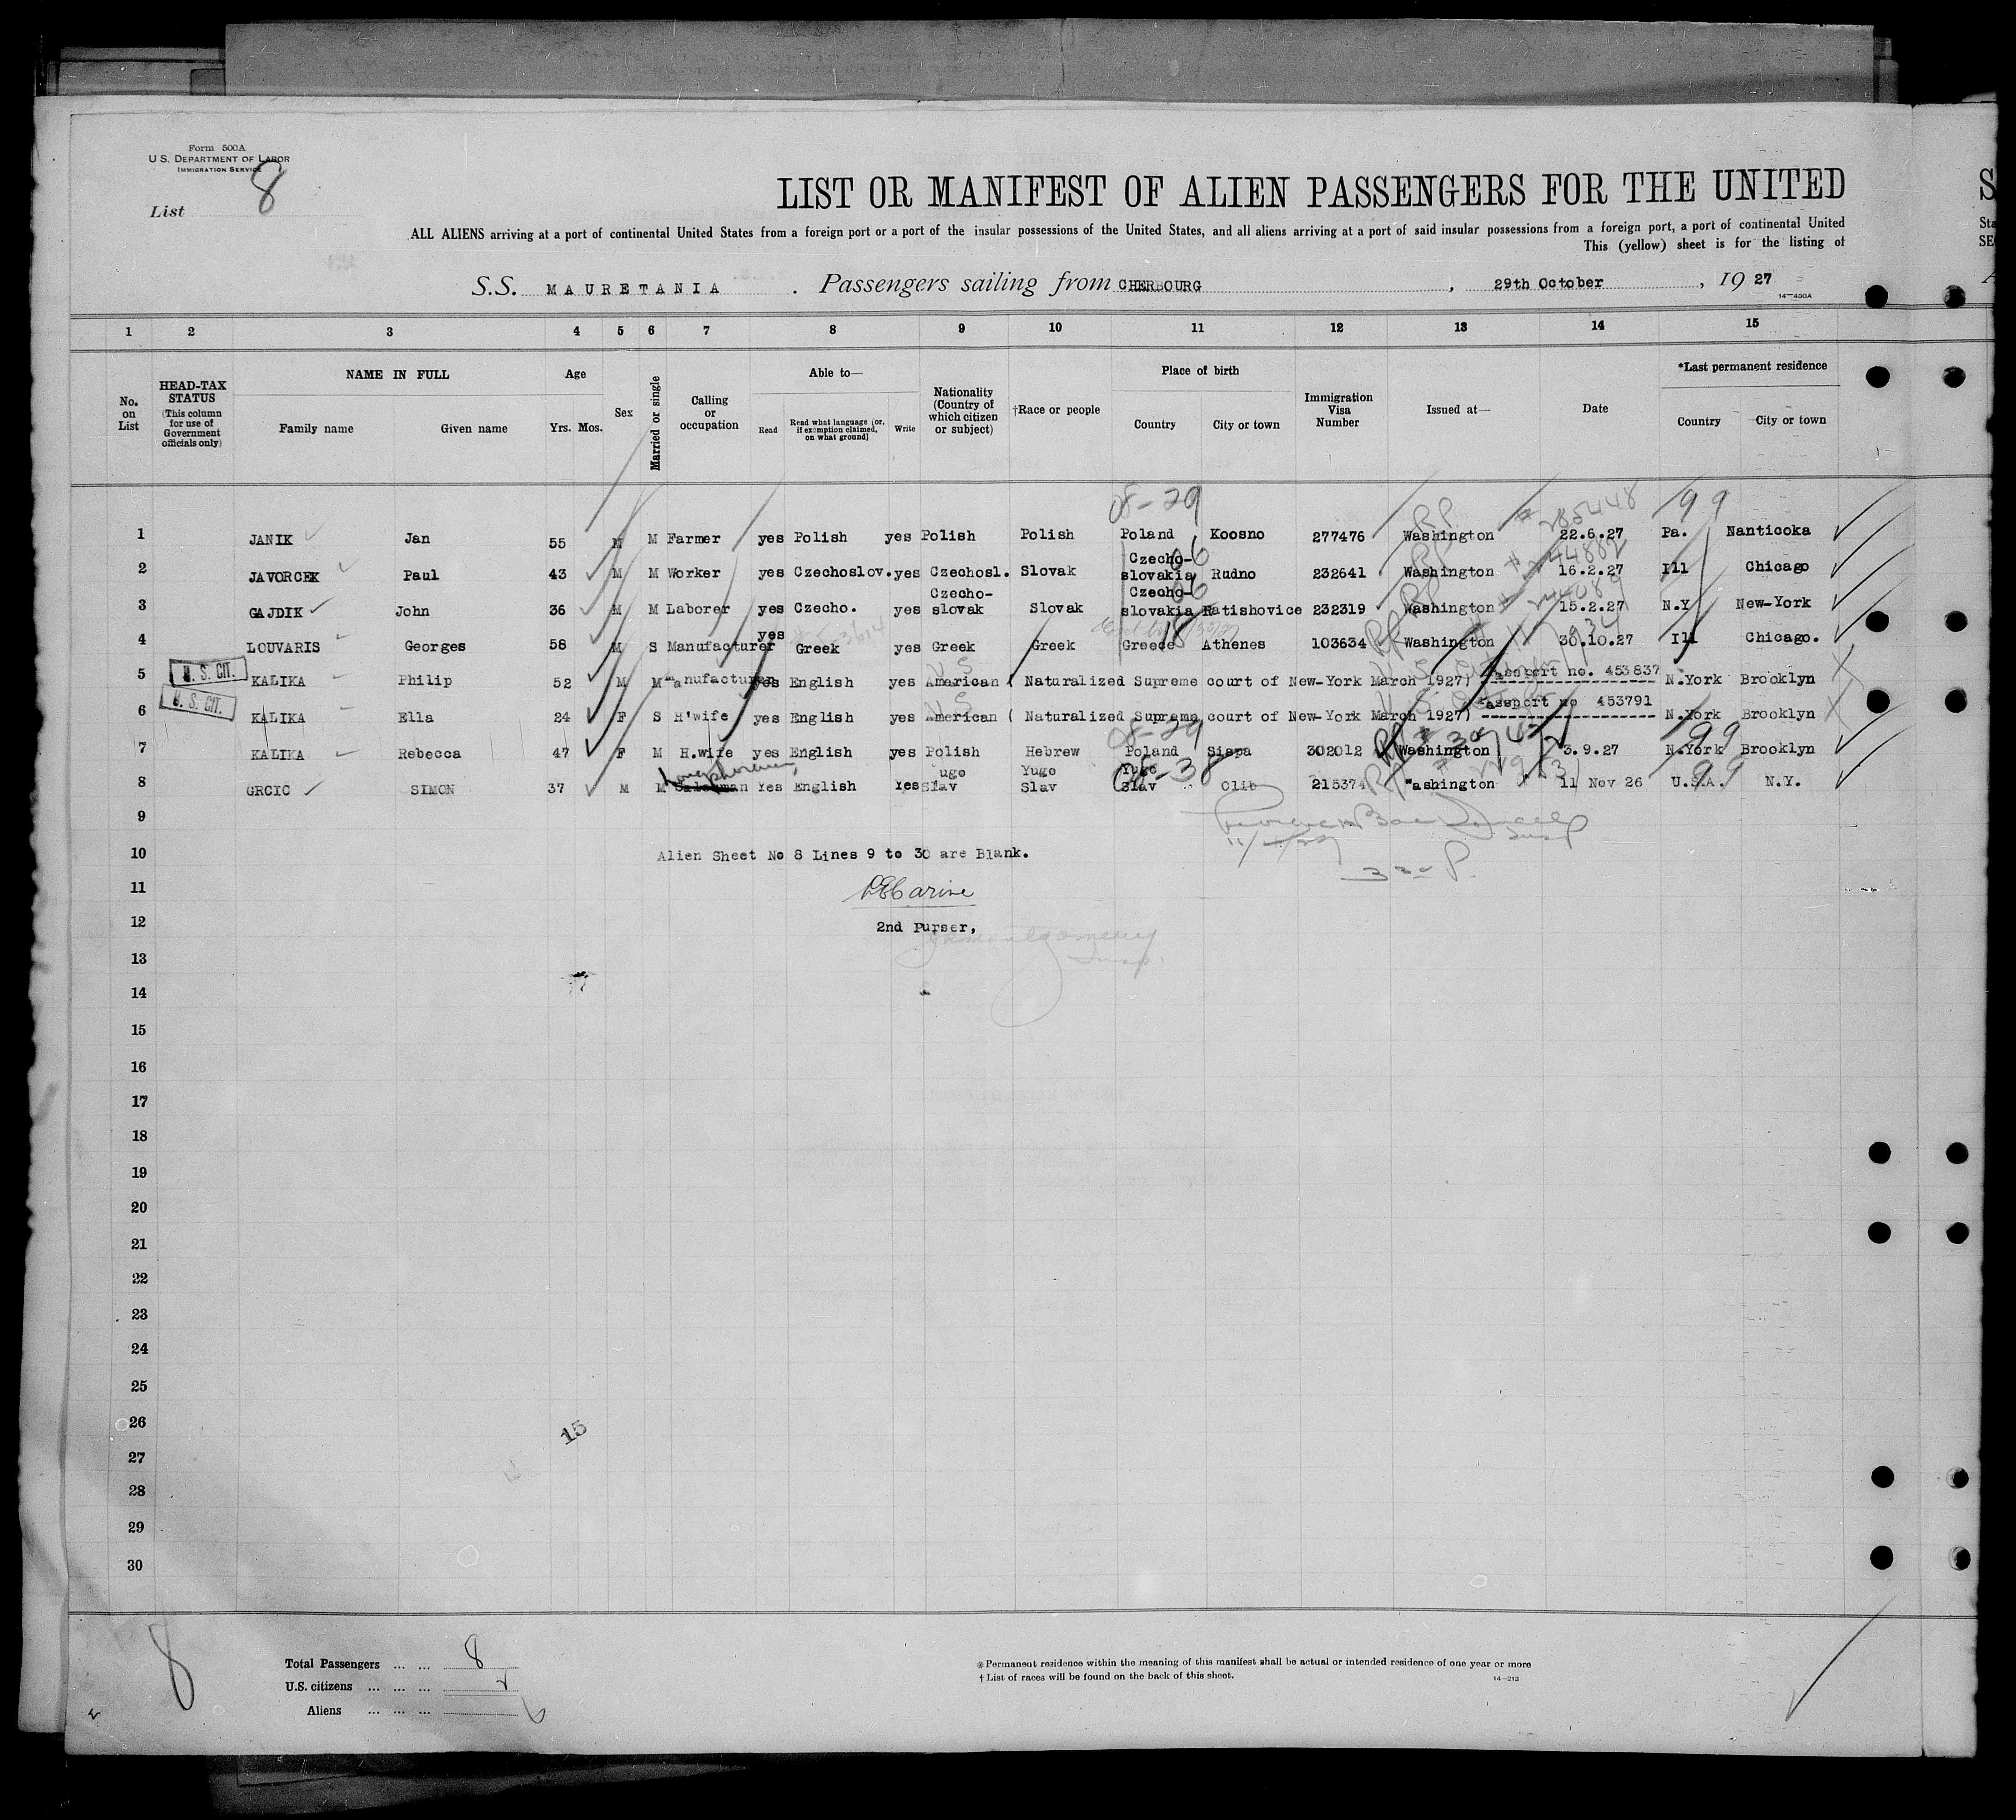 Form 500A
U.S. DEPARTMENT OF LABOR
IMMIGRATION SERVICE
List 8
LIST OR MANIFEST OF ALIEN PASSENGERS FOR THE UNITED
S
ALL ALIENS arriving at a port of continental United States from a foreign port or a port of the insular possessions of the United States, and all aliens arriving at a port of said insular possessions from a foreign port, a port of continental United
Sta
This (yellow) sheet is for the listing of
SE
S.S. MAURETANIA . Passengers sailing from CHERBOURG , 29th October , 19 27
14-430A
1 2 3 4 5 6 7 8 9 10 11 12 13 14 15
HEAD-TAX STATUS (This column for use of Government officials only)
No. on List
NAME IN FULL
Family name Given name
Age
Yrs. Mos.
Sex
Married or single
Calling or occupation
Able to—
Read
Read what language [or, if exemption claimed, on what ground]
Write
Nationality (Country of which citizen or subject)
†Race or people
Place of birth
Country City or town
Immigration Visa Number
Issued at—
Date
*Last permanent residence
Country City or town
08-29 99
1 JANIK Jan 55 M M Farmer yes Polish yes Polish Polish Poland Koosno 277476 RP Washington 22.6.27 Pa. Nanticoka
2 JAVORCEK Paul 43 M M Worker yes Czechoslov. yes Czechosl. Slovak Czecho-slovakia Rudno 232641 Washington 16.2.27 Ill Chicago
3 GAJDIK John 36 M M Laborer yes Czecho. yes Czecho-slovak Slovak Czecho-slovakia Ratishovice 232319 Washington 15.2.27 N.Y New-York
4 LOUVARIS Georges 58 M S Manufacturer yes Greek yes Greek Greek Greece Athenes 103634 Washington 30.10.27 Ill Chicago.
5 U.S. CIT. KALIKA Philip 52 M M Manufacturer yes English yes American ( Naturalized Supreme court of New-York March 1927) Passport no. 453837 N.York Brooklyn
6 U.S. CIT. KALIKA Ella 24 F S H'wife yes English yes American ( Naturalized Supreme court of New-York March 1927) Passport no 453791 N.York Brooklyn
08-29 99
7 KALIKA Rebecca 47 F M H.wife yes English yes Polish Hebrew Poland Sispa 302012 Washington 3.9.27 N.York Brooklyn
8 GRCIC SIMON 37 M M Longshoreman Yes English Yes Yugo Slav Yugo Slav Yugo Slav Olib 215374 Washington 11 Nov 26 U.S.A. N.Y.
9
10 Alien Sheet No 8 Lines 9 to 30 are Blank.
11
12 2nd Purser,
13
14
15
16
17
18
19
20
21
22
23
24
25
26
15
27
28
29
30
8
Total Passengers ... ... 8
U.S. citizens ... ... ... 2
Aliens ... ... ... 6
*Permanent residence within the meaning of this manifest shall be actual or intended residence of one year or more
†List of races will be found on the back of this sheet.
14-213